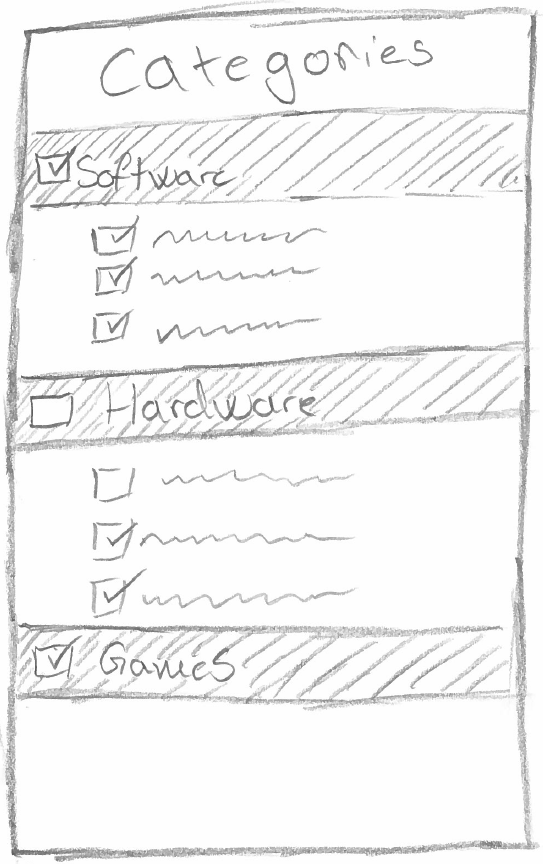 Categories
Software
Hardware
Games